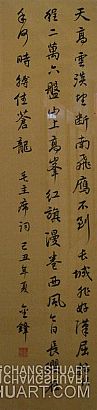 天高雲淡望断南飛雁不到长城非好漢屈指行
程二萬六盤山上高峯紅旗漫卷西風今日長纓在
手何時縛住蒼龍 毛主席詞己丑年夏金鋒